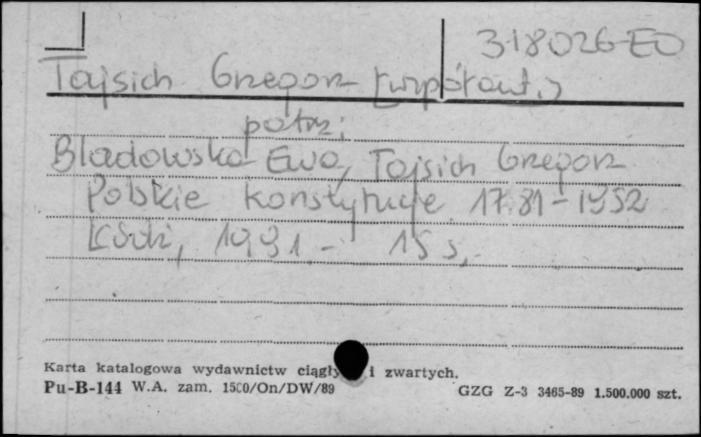 318026-EO
Tajsich Grzegorz [współaut.]
patrz:
Bladowska Ewa, Tajsich Grzegorz
Polskie konstytucje 1791-1952
Łódź, 1991.- 15 s.-
Karta katalogowa wydawnictw ciągły i zwartych.
Pu-B-144 W.A. zam. 1500/On/DW/89 GZG Z-3 3465-89 1.500.000 szt.